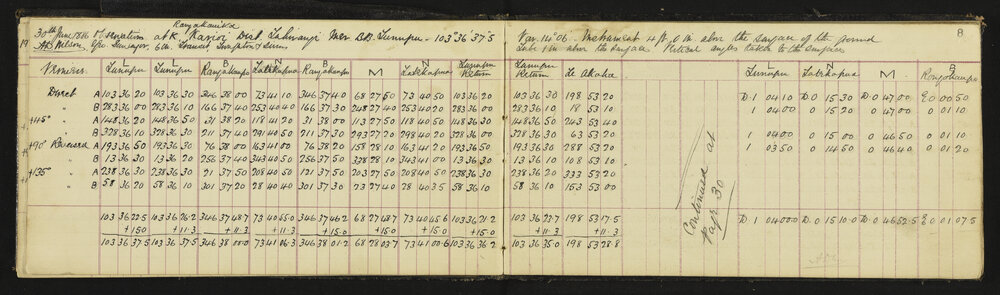 Rangakaruka
8
30th June 1886 Observations at K. Karioi Dist. Mer. B.B. Lunupu - 103° 36' 37"5
Var. 14° 06'. Instrument 4 ft. 0 in above the surface of the ground
19 Wilson, Geo. Surveyor, 6 in. Transit, Troughton & Simms
1 in above the surface Vertical angles taken to the surface
L L B L B M L Lunupu Lunupu L L M B
Verniers Lunupu Lunupu Return Return Te Akatea Lunupu
Direct A 103 36 20 103 36 30 346 38 00 73 41 10 346 37 40 68 27 50 73 40 50 103 36 20 103 36 30 198 53 20 D. 1 04 10 D. 0 15 30 D. 0 47 00 E 0 00 50
" B 283 36 10 283 36 10 166 37 40 253 40 40 166 37 30 248 27 40 253 40 20 283 36 00 283 36 10 18 53 10 1 04 00 0 15 20 0 47 00 0 01 10
+45° " A 148 36 20 148 36 50 31 38 20 118 41 20 31 38 00 113 27 50 118 40 50 148 36 30 148 36 50 243 53 40
" B 328 36 10 328 36 30 211 37 40 291 40 50 211 37 30 293 27 20 298 40 20 328 36 00 328 36 30 63 53 20 1 04 00 0 15 00 0 46 50 0 01 10
+90° Reversed A 193 36 50 193 36 30 76 38 00 163 41 00 76 38 20 158 28 10 163 41 20 193 36 50 193 36 30 288 53 20 1 03 50 0 14 50 0 46 40 0 01 20
" B 13 36 30 13 36 20 256 37 40 343 40 50 256 37 50 338 28 10 343 41 00 13 36 30 13 36 10 108 53 10
+135° " A 238 36 30 238 36 30 21 37 50 208 40 50 121 37 50 203 27 50 208 40 50 238 36 30 238 36 20 333 53 20
" B 58 36 20 58 36 10 301 37 20 28 40 40 301 37 30 23 27 40 28 40 35 58 36 10 58 36 10 153 53 00
Continued at
Page 30
103 36 22.5 103 36 26.2 346 37 48.7 73 40 55.0 346 37 46.2 68 27 48.7 73 40 45.6 103 36 21.2 103 36 23.7 198 53 17.5 D. 1 04 00.0 D. 0 15 10.0 D. 0 46 52.5 E 0 01 07.5
+15.0 +11.3 +11.3 +11.3 +15.0 +15.0 +15.0 +15.0 +11.3 +11.3
103 36 37.5 103 36 37.5 346 38 00.0 73 41 06.3 346 38 01.2 68 28 03.7 73 41 00.6 103 36 36.2 103 36 35.0 198 53 28.8